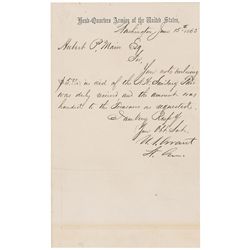 Head-Quarters Armies of the United States,
Washington June 15th 1865
Hubert P. Main Esq.
Sir,
Your note inclosing
as aid of the
was duly received and the amount was
handed to the Treasurer as requested.
Your Obt. Svt.
U. S. Grant
Lt. Gen.